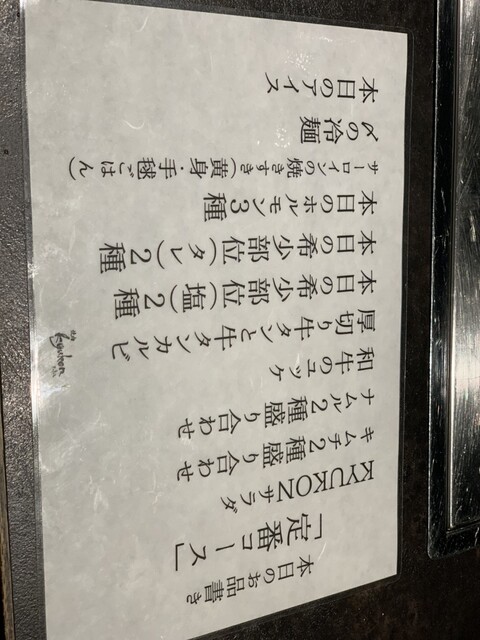 本日のお品書き
「定番コース」
KYUKONサラダ
キムチ2種盛り合わせ
ナムル2種盛り合わせ
和牛のユッケ
厚切り牛タンと牛タンカルビ
本日の希少部位(塩)2種
本日の希少部位(タレ)2種
本日のホルモン3種
サーロインの焼きすき(黄身・手毬ごはん)
〆の冷麺
本日のアイス